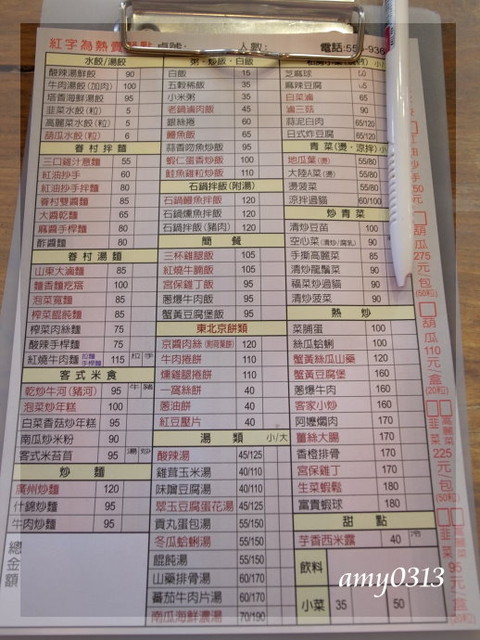 紅字為熱賣
人數
電話:55
水餃/湯餃
酸辣湯鮮餃 90
牛肉湯餃(加肉) 100
塔香海鮮湯餃 95
韭菜水餃(粒) 5
高麗菜水餃(粒) 5
胡瓜水餃(粒) 6
眷村拌麵
三口雞汁意麵 55
紅油抄手 60
紅油抄手拌麵 80
眷村雙醬麵 85
大醬乾麵 65
麻醬手桿麵 80
酢醬麵 80
眷村湯麵
山東大滷麵 85
麵香餛飩麵 100
泡菜寬麵 85
榨菜肉絲麵 75
酸辣手桿麵 75
紅燒牛肉麵 115
客式米食
乾炒牛河(豬河) 95
泡菜炒年糕 100
白菜香菇炒年糕 95
南瓜炒米粉 90
客式米苔苜 95
炒麵
廣州炒麵 120
什錦炒麵 95
牛肉炒麵 95
總金額
粥、炒飯、白飯
白飯 15
五穀棉飯 35
小米粥 35
老鍋滷肉飯 45
銀絲捲 60
鱔魚飯 65
蒜香吻魚炒飯 100
蝦仁蛋香炒飯 100
鮭魚雞粒炒飯 110
石鍋拌飯(附湯)
石鍋鱔魚飯 120
石鍋燻魚拌飯 120
石鍋拌飯(豬肉) 120
簡餐
三杯雞腿飯 105
紅燒牛腩飯 105
宮保雞丁飯 95
蔥爆牛肉飯 95
蟹黃豆腐煲飯 95
東北京餅類
京醬肉絲 110
牛肉捲餅 110
燻雞腿捲餅 110
一窩絲餅 40
蔥油餅 40
紅豆壓片 40
湯類 小/大
酸辣湯 45/125
雞茸玉米湯 40/110
味噌豆腐湯 40/110
翠玉豆腐蛋花湯 45/125
貢丸蛋包湯 55/150
冬瓜蛤蜊湯 55/150
餛飩湯 55/150
山藥排骨湯 60/170
蕃茄牛肉片湯 60/170
南瓜海鮮濃湯 70/190
芝麻球
麻辣豆腐
白菜滷 65
滷三菇 90
蒜泥白肉 65/120
日式炸豆腐 65/120
青菜(燙、涼拌)
地瓜葉(燙) 55/80
大陸A菜(燙) 55/80
燙菠菜 55/80
涼拌過貓 60/100
炒青菜
清炒豆苗 100
空心菜(清炒/腐乳) 90
手撕高麗菜 85
清炒龍鬚菜 90
福菜炒過貓 90
清炒菠菜 90
熱炒
菜脯蛋 100
絲瓜蛤蜊 100
蟹黃絲瓜山藥 120
蟹黃豆腐煲 160
蔥爆牛肉 160
客家小炒 160
阿嬤燜肉 170
薑絲大腸 170
香橙排骨 170
宮保雞丁 170
生菜蝦鬆 180
富貴蝦球 180
甜點
芋香西米露 40 冷
飲料
小菜 35 50
胡瓜275元/包(50粒)
胡瓜110元/盒(20粒)
高麗菜
韭菜
225元/包(50粒)
韭菜95元/盒
amy0313